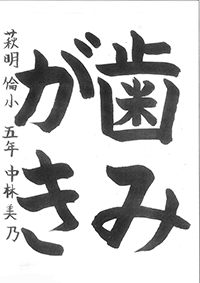 歯み
がき
萩明倫小 五年 中林美乃